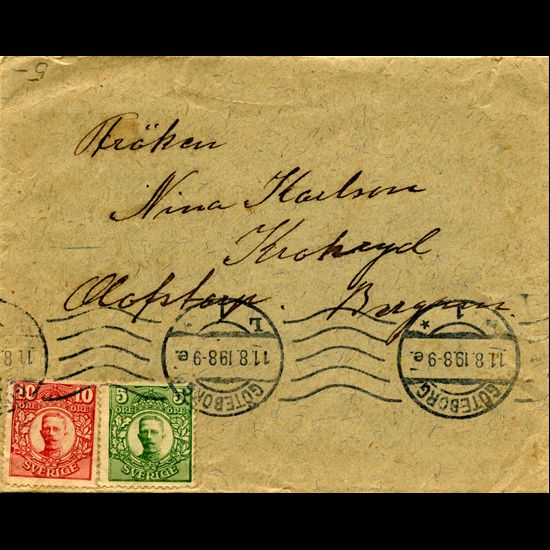 5-
Fröken
Nina Karlson
Krokryd
Olofstorp. Bergum.
11.8
L L
11.8.19 8-9 e.
GÖTEBORG
* 1 *
11.8.19 8-9 e.
GÖTEBORG
10 10
ÖRE ÖRE
SVERIGE
5 5
ÖRE ÖRE
SVERIGE